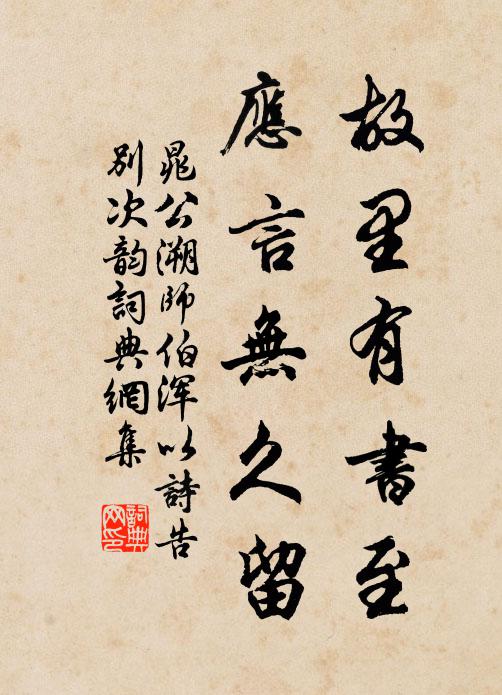 故里有書至
應言無久留
晁公溯師伯渾以詩告
別次韵詞典網集
詞典網印